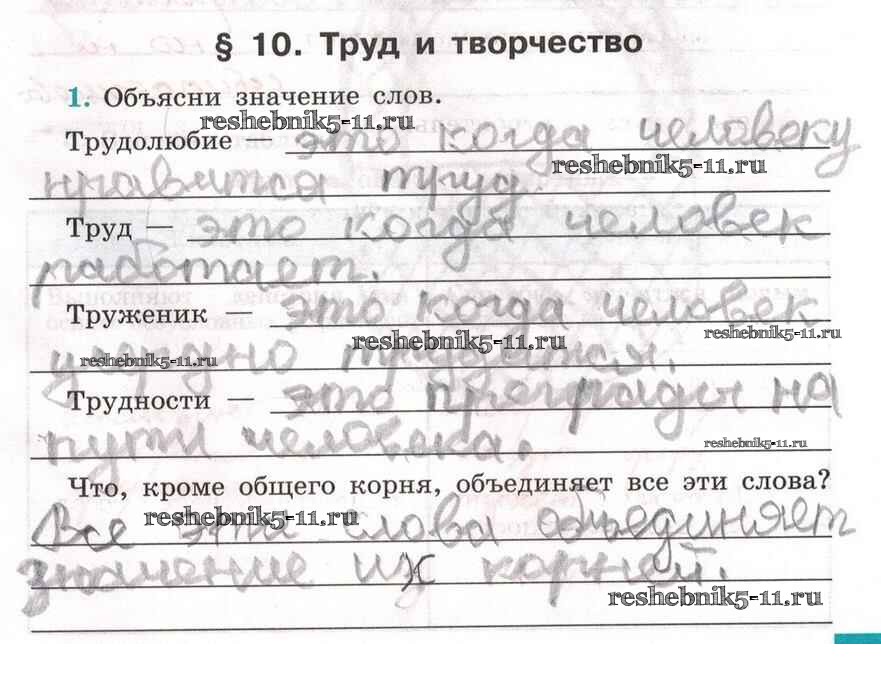 § 10. Труд и творчество
1. Объясни значение слов.
reshebnik5-11.ru
Трудолюбие — это когда человеку
reshebnik5-11.ru
нравится труд.
Труд — это когда человек
работает.
Труженик — это когда человек
reshebnik5-11.ru
reshebnik5-11.ru
усердно трудится.
reshebnik5-11.ru
Трудности — это преграды на
пути человека.
reshebnik5-11.ru
Что, кроме общего корня, объединяет все эти слова?
reshebnik5-11.ru
Все эти слова объединяет
значение их корней.
reshebnik5-11.ru